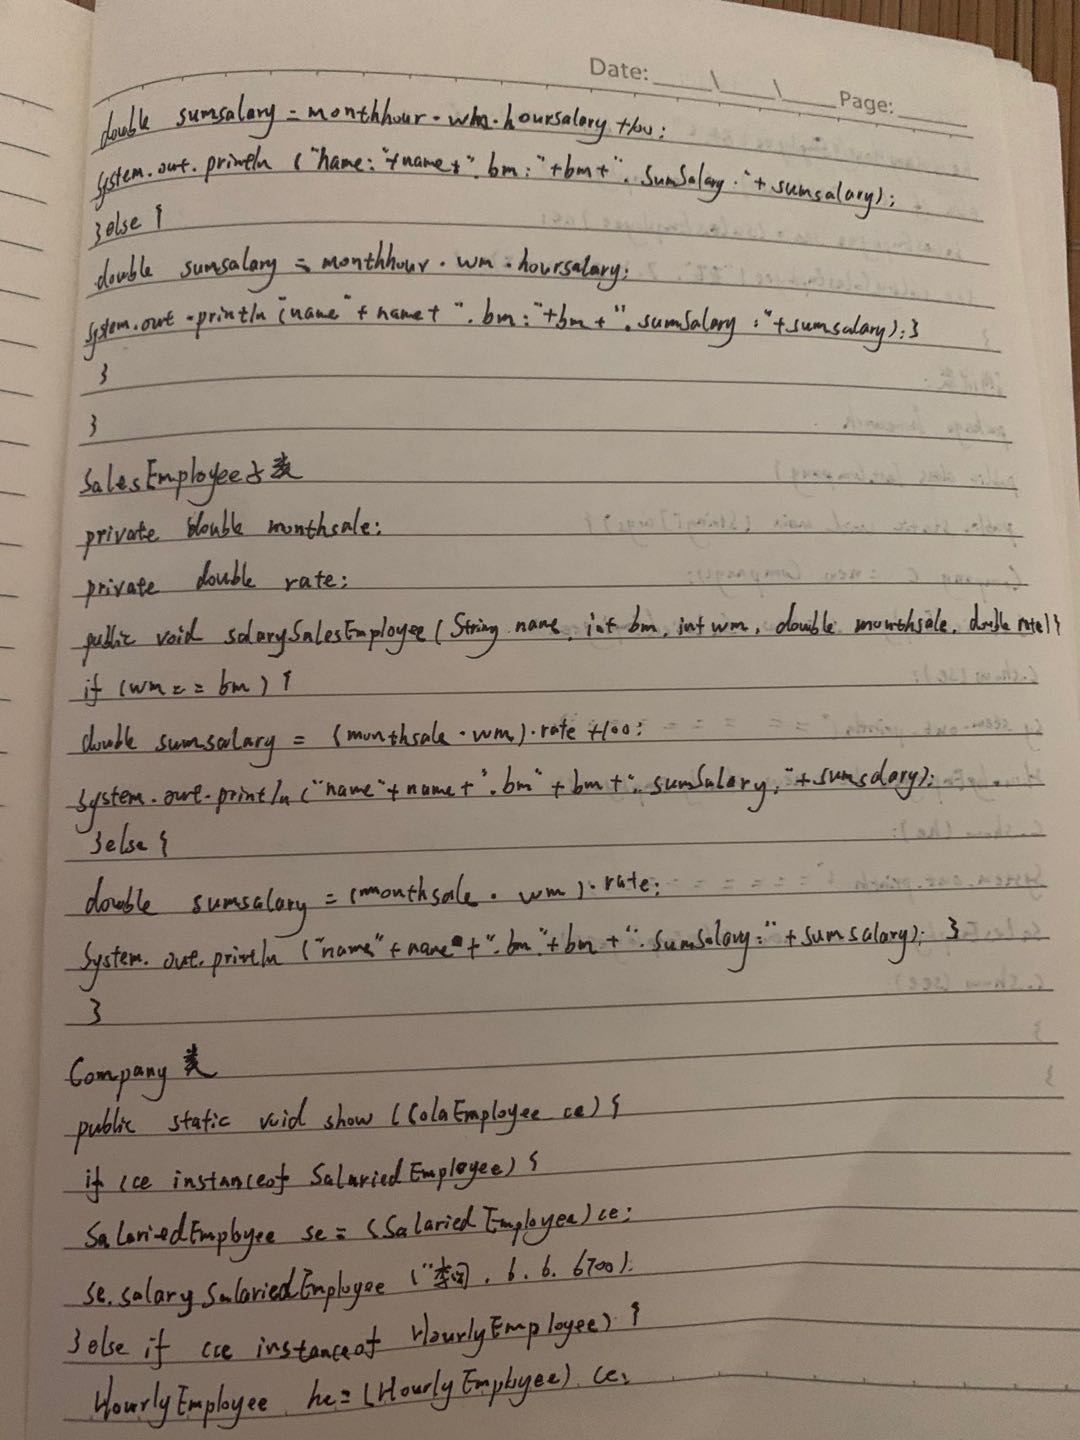 Date: \ \ Page:
double sumsalary = monthhour · wm · hoursalary +100;
System.out.println ("name: "+name+". bm: "+bm+". SumSalary: "+ sumsalary);
}else {
double sumsalary = monthhour · wm · hoursalary;
System.out.println ("name" + name + ". bm: "+bm + ". sumSalary : "+sumsalary); }
}
}
SalesEmployee 子类
private double monthsale;
private double rate;
public void salarySalesEmployee (String name, int bm, int wm, double monthsale, double rate) {
if (wm == bm) {
double sumsalary = (monthsale · wm) · rate +100;
System.out.println ("name"+ name + ". bm" + bm + ". sumSalary: "+ sumsalary);
}else {
double sumsalary = (monthsale · wm) · rate;
System.out.println ("name" + name + ". bm "+bm + ". SumSalary: " + sumsalary); }
}
Company 类
public static void show (ColaEmployee ce) {
if (ce instanceof SalariedEmployee) {
SalariedEmployee se = (SalariedEmployee) ce;
se.salarySalariedEmployee ("李四, 6. 6. 6700);
}else if (ce instanceof HourlyEmployee) {
HourlyEmployee he = (HourlyEmployee) ce;